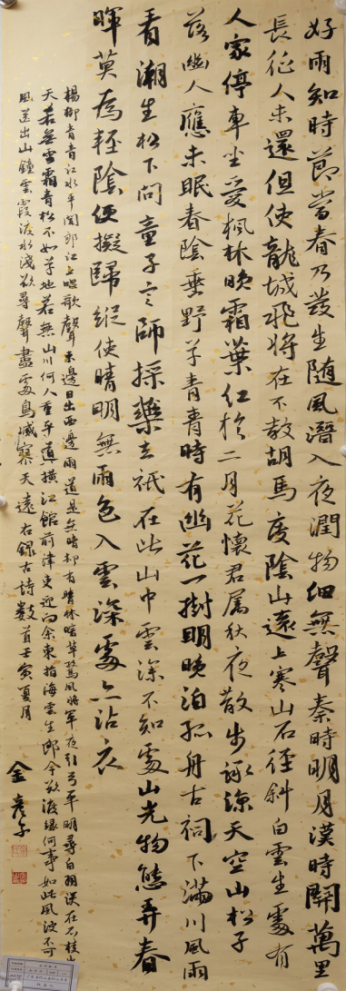 好雨知時節當春乃發生随風潛入夜潤物細無聲秦時明月漢時關萬里
長征人未還但使龍城飛将在不教胡馬度陰山遠上寒山石徑斜白雲生處有
人家停車坐愛楓林晚霜葉红於二月花懷君属秋夜散步詠涼天空山松子
落幽人應未眠春陰垂野草青青時有幽花一樹明晚泊孤舟古祠下滿川風雨
看潮生松下問童子言師採藥去祇在此山中雲深不知處山光物態弄春
暉莫為輕陰便擬歸縱使晴明無雨色入雲深處亦沾衣
楊柳青青江水平聞郎江上唱歌聲東邊日出西邊雨道是無晴却有晴林暗草驚風将軍夜引弓平明尋白羽沒在石棱中
天若無雪霜青松不如草地若無山川何人重平道横江館前津吏迎向余東指海雲生郎今欲渡緣何事如此風波不可
風送出山鐘雲霞渡水淺欲尋聲盡處鳥滅寥天遠右錄古詩數首壬寅夏月
金彦